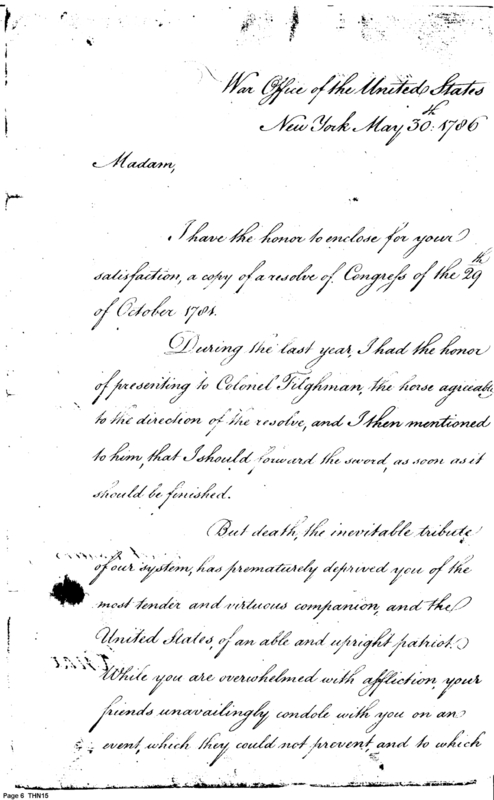 War Office of the United States
New York May 30th: 1786
Madam,
I have the honor to enclose for your
satisfaction, a copy of a resolve of Congress of the 29th
of October 1781.
During the last year, I had the honor
of presenting to Colonel Tilghman, the horse agreeably
to the direction of the resolve, and I then mentioned
to him, that I should forward the sword, as soon as it
should be finished.
But death, the inevitable tribute
of our system, has prematurely deprived you of the
most tender and virtuous companion, and the
United States, of an able and upright patriot.
While you are overwhelmed with affliction, your
friends unavailingly condole with you on an
event, which they could not prevent, and to which
Page 6 THN15